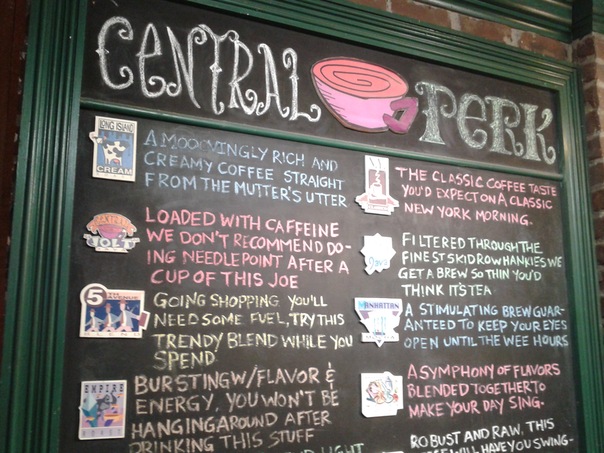 CENTRAL PERK
LONG ISLAND
CREAM
A MOOOVINGLY RICH AND
CREAMY COFFEE STRAIGHT
FROM THE MUTTER'S UTTER
JOLT
LOADED WITH CAFFEINE
WE DON'T RECOMMEND DO-
ING NEEDLEPOINT AFTER A
CUP OF THIS JOE
5TH AVENUE
BLEND
GOING SHOPPING YOU'LL
NEED SOME FUEL, TRY THIS
TRENDY BLEND WHILE YOU
SPEND
EMPIRE
ROAST
BURSTING W/FLAVOR &
ENERGY, YOU WON'T BE
HANGING AROUND AFTER
DRINKING THIS STUFF
LIGHT
THE CLASSIC COFFEE TASTE
YOU'D EXPECT ON A CLASSIC
NEW YORK MORNING.
FILTERED THROUGH THE
FINEST SKID ROW HANKIES WE
GET A BREW SO THIN YOU'D
THINK IT'S TEA
MANHATTAN
A STIMULATING BREW GUAR-
ANTEED TO KEEP YOUR EYES
OPEN UNTIL THE WEE HOURS
A SYMPHONY OF FLAVORS
BLENDED TOGETHER TO
MAKE YOUR DAY SING.
ROBUST AND RAW, THIS
WILL HAVE YOU SWING-